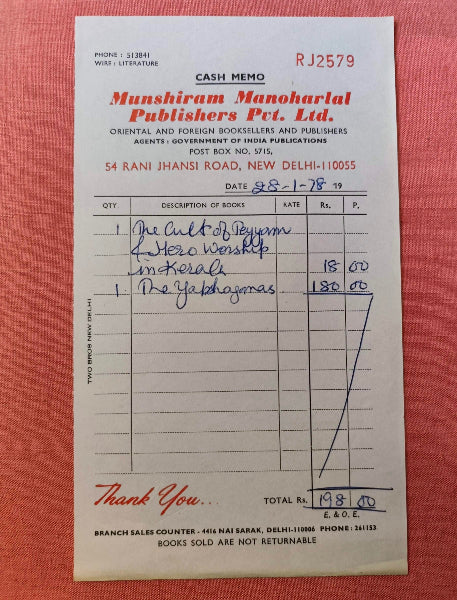 PHONE : 513841
WIRE : LITERATURE
RJ2579
CASH MEMO
Munshiram Manoharlal
Publishers Pvt. Ltd.
ORIENTAL AND FOREIGN BOOKSELLERS AND PUBLISHERS
AGENTS : GOVERNMENT OF INDIA PUBLICATIONS
POST BOX NO. 5715,
54 RANI JHANSI ROAD, NEW DELHI-110055
DATE 28-1-78 19
QTY. DESCRIPTION OF BOOKS RATE Rs. P.
1 The Cult of Teyyam
& Hero Worship
in Kerala 18 00
1. The Yakhagamas 180 00
TWO BROS NEW DELHI
Thank You...
TOTAL Rs. 198 00
E. & O. E.
BRANCH SALES COUNTER - 4416 NAI SARAK, DELHI-110006 PHONE : 261153
BOOKS SOLD ARE NOT RETURNABLE